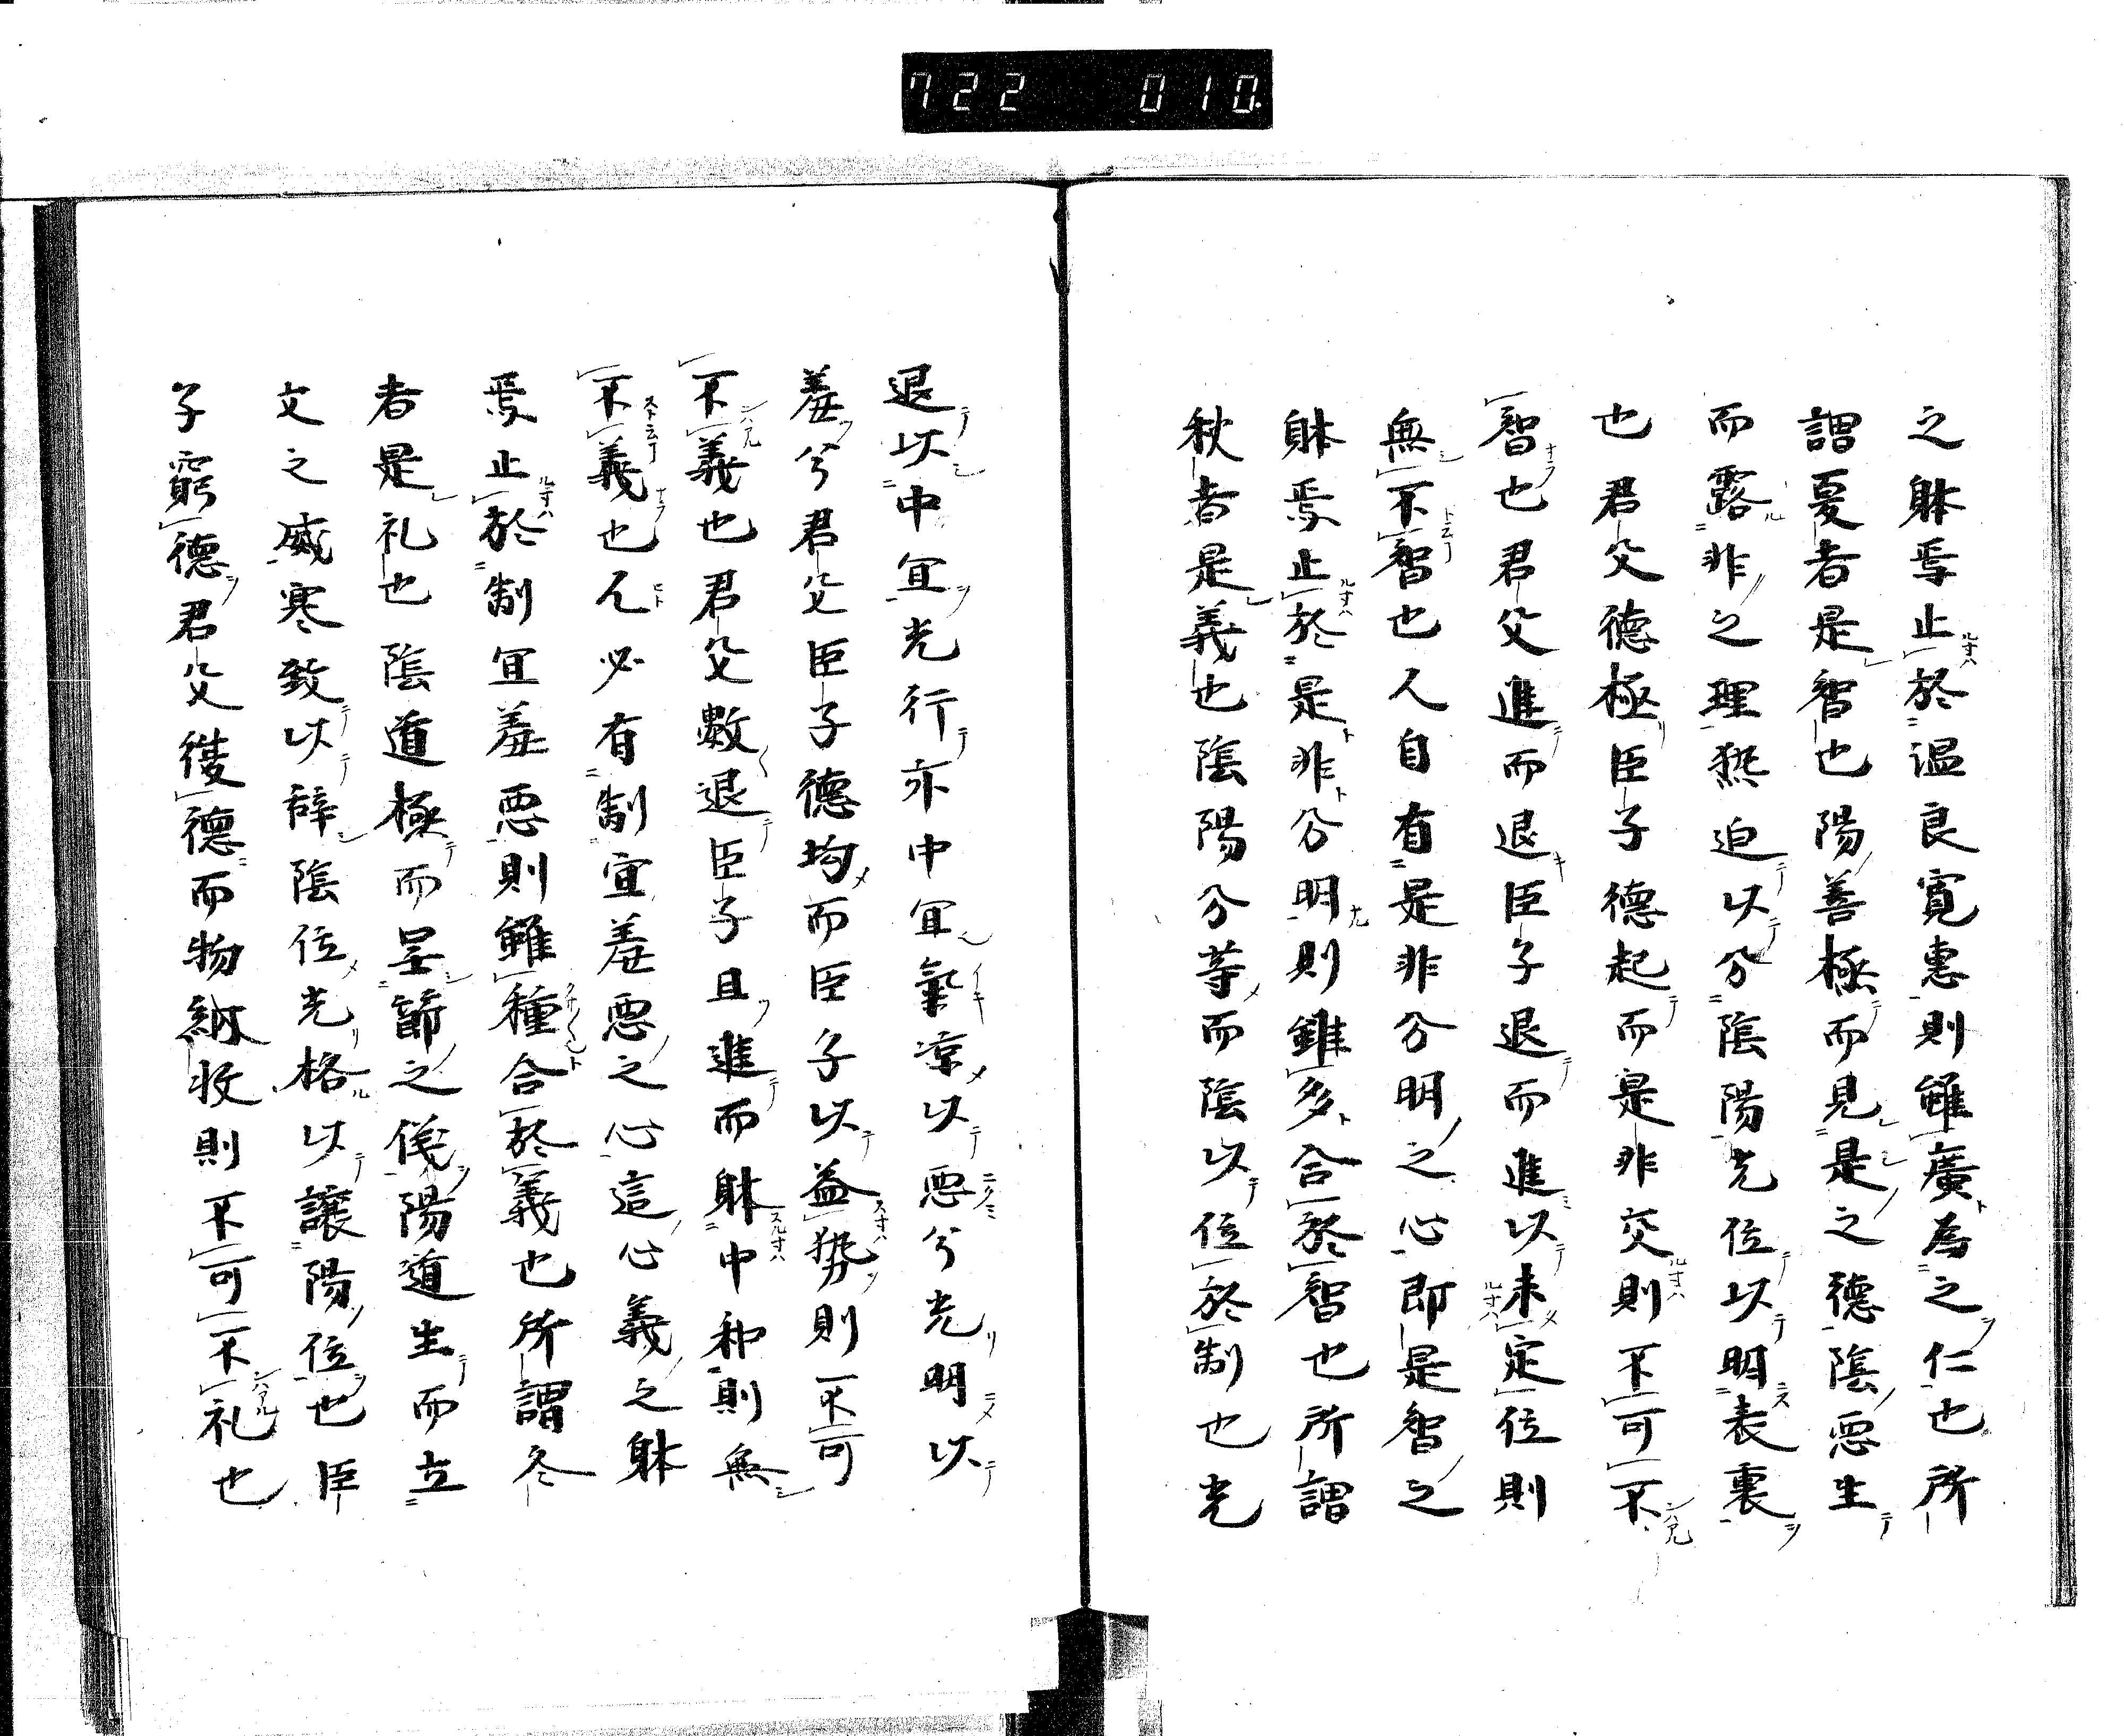 722 010.
之躰焉止於温良寛惠則雖廣為之仁也所
謂夏者是智也陽善極而見是之德陰惡生
而露非之理熱迫以分陰陽光位以明表裏
也君父德極臣子德起而是非交則不可不
智也君父進而退臣子退而進以未定位則
無不智也人自有是非分明之心即是智之
躰焉止於是非分明則雖多合於智也所謂
秋者是義也陰陽分等而陰以位於制也光
退以中宜光行亦中宜氣凉以惡兮光明以
羞兮君父臣子德均而臣子以益勢則不可
不義也君父數退臣子且進而躰中和則無
不義也人必有制宜羞惡之心這心義之躰
焉止於制宜羞惡則雖種合於義也所謂冬
者是礼也陰道極而呈節之儀陽道生而立
文之威寒致以辞陰位光格以讓陽位也臣
子窮德君父復德而物納收則不可不礼也